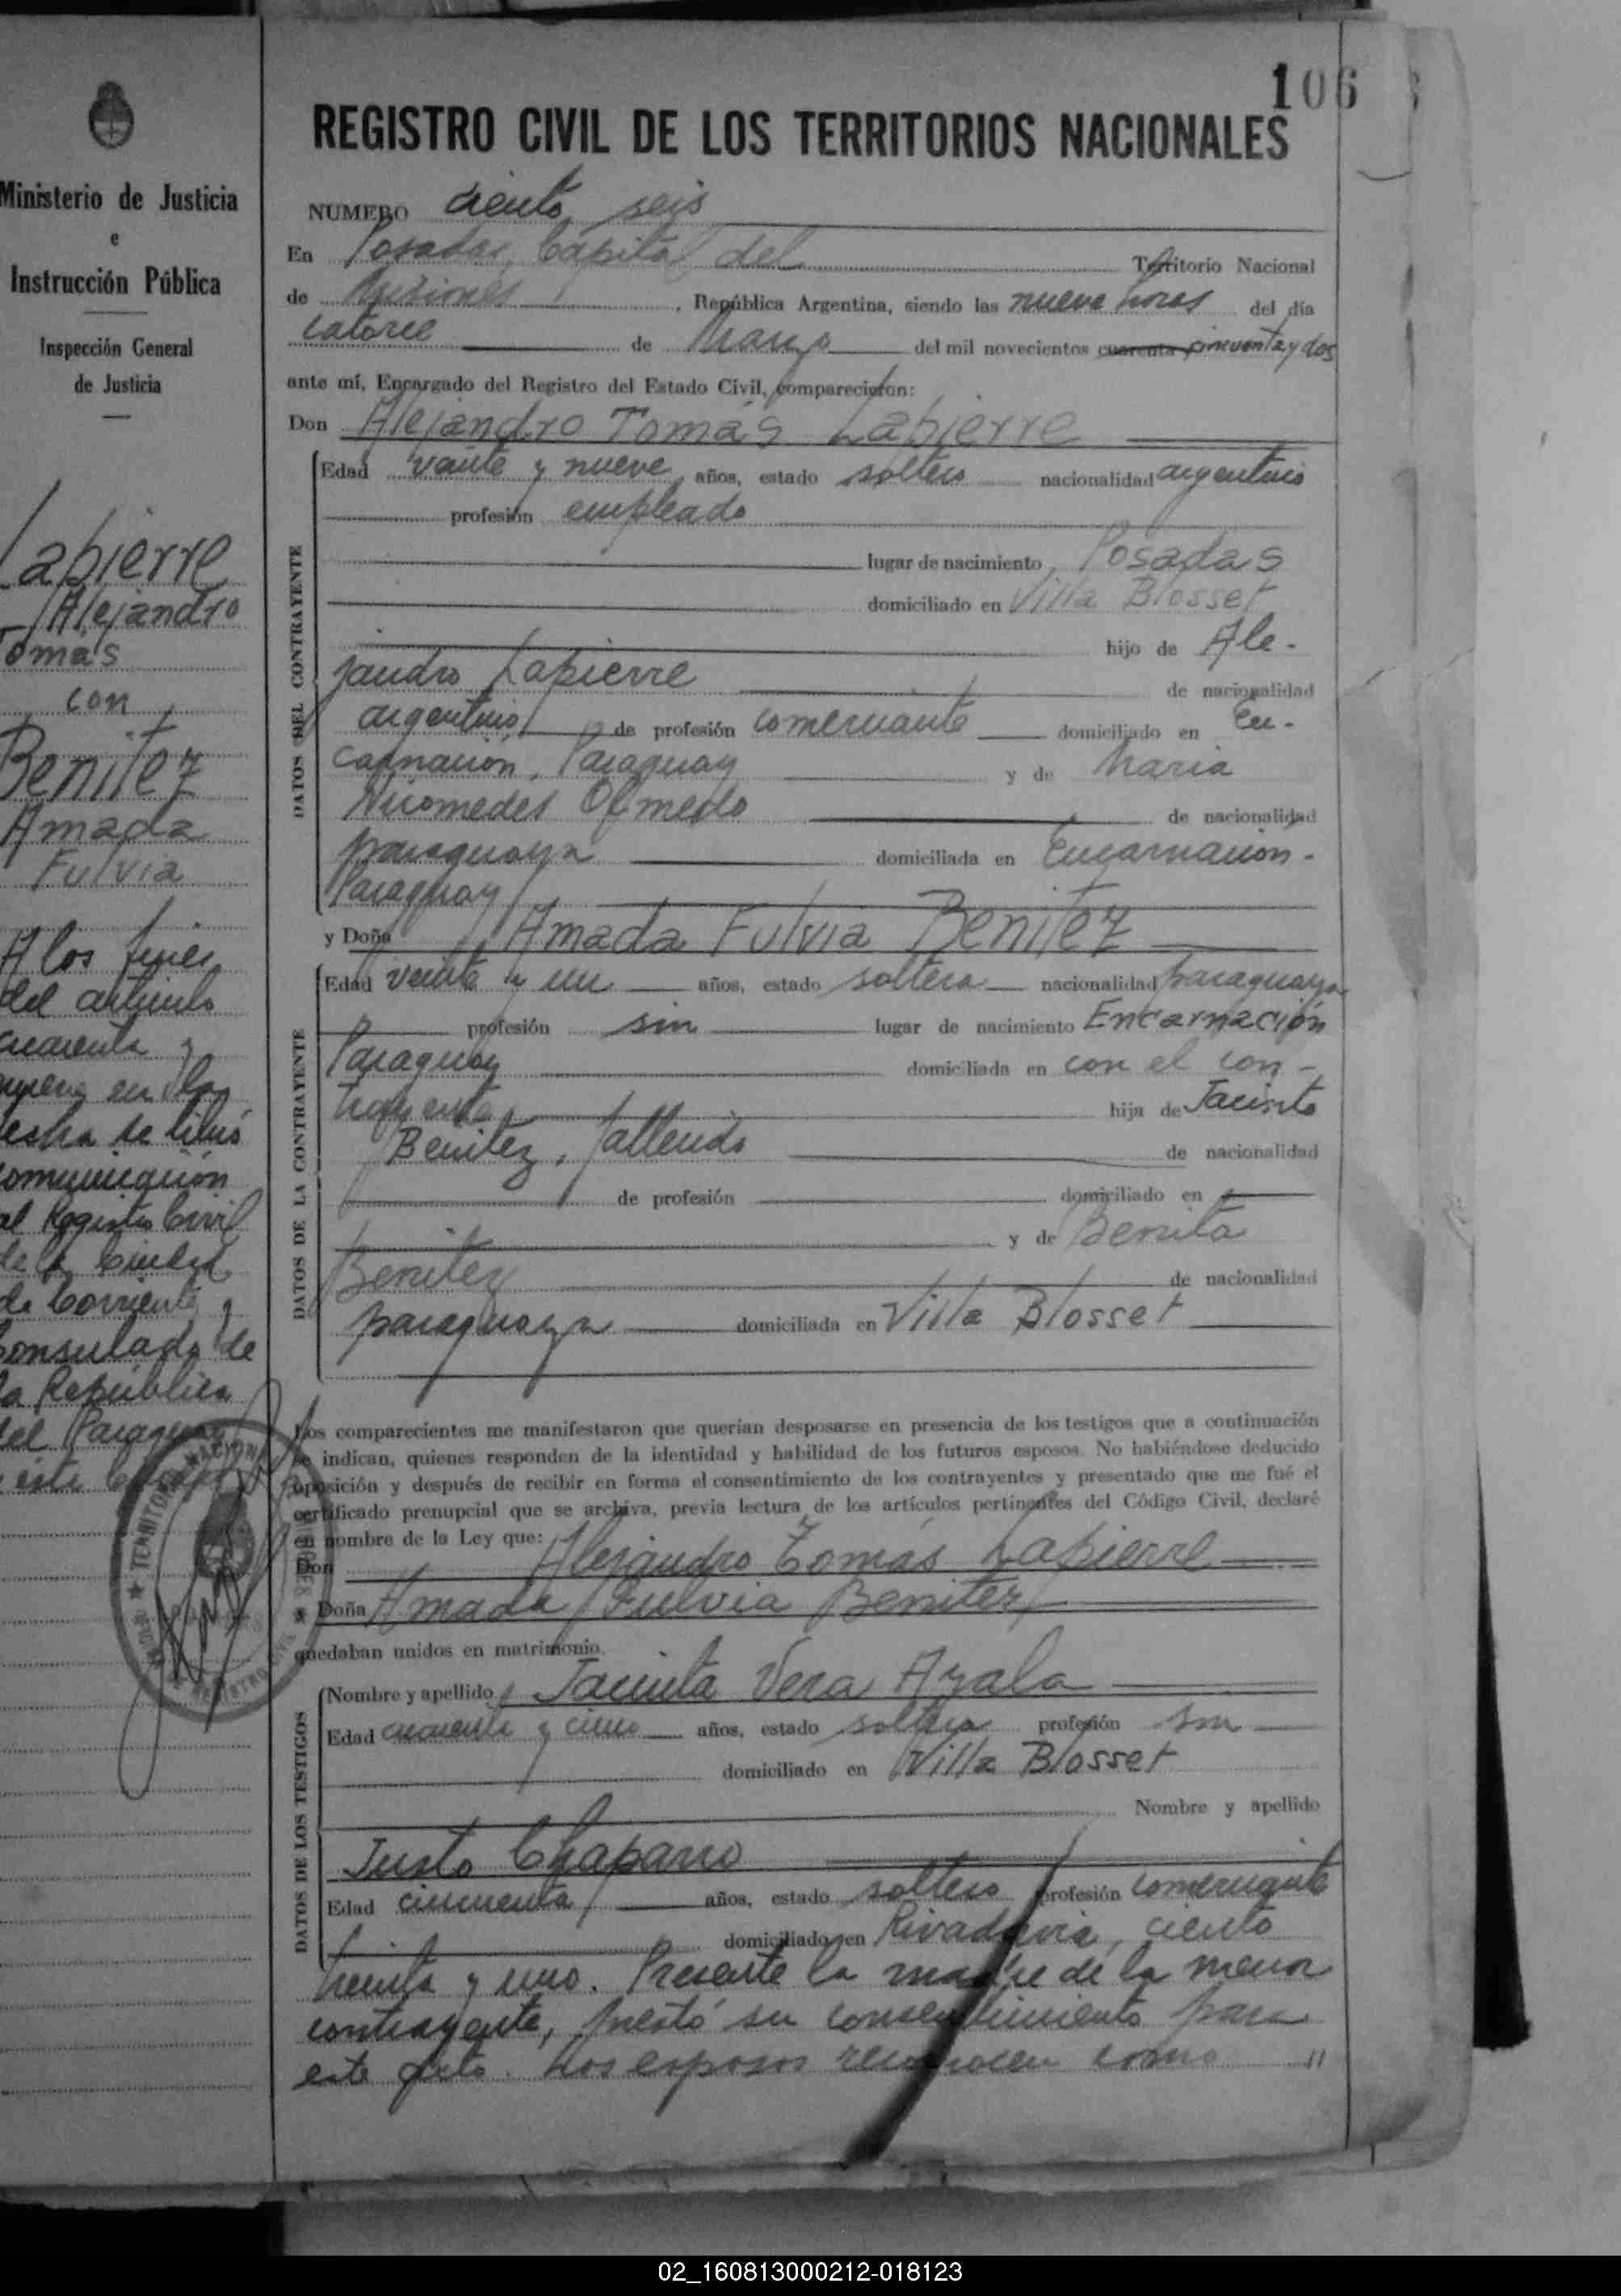 106
REGISTRO CIVIL DE LOS TERRITORIOS NACIONALES
Ministerio de Justicia
e
Instrucción Pública
Inspección General
de Justicia
Lapierre
Alejandro
Tomás
con
Benitez
Amada
Fulvia
A los fines
del artículo
cuarenta y
nueve en la
fecha se libró
comunicación
al Registro Civil
de la Ciudad
de Corrientes y
Consulado de
la República
del Paraguay
NUMERO ciento seis
En Posadas, Capital del Territorio Nacional
de Misiones, República Argentina, siendo las nueve horas del día
catorce de Marzo del mil novecientos cuarenta cincuenta y dos
ante mí, Encargado del Registro del Estado Civil, comparecieron:
Don Alejandro Tomás Lapierre
DATOS DEL CONTRAYENTE
Edad veinte y nueve años, estado soltero nacionalidad argentino
profesión empleado
lugar de nacimiento Posadas
domiciliado en Villa Blosset
hijo de Ale-
jandro Lapierre de nacionalidad
argentino de profesión comerciante domiciliado en En-
carnación, Paraguay y de Maria
Nicomedes Olmedo de nacionalidad
paraguaya domiciliada en Encarnación-
Paraguay
y Doña Amada Fulvia Benitez
DATOS DE LA CONTRAYENTE
Edad veinte y un años, estado soltera nacionalidad paraguaya
profesión sin lugar de nacimiento Encarnación
Paraguay domiciliada en con el con-
trayente, hija de Jacinto
Benitez, fallecido de nacionalidad
de profesión domiciliado en
y de Benita
Benitez de nacionalidad
paraguaya domiciliada en Villa Blosset
Los comparecientes me manifestaron que querían desposarse en presencia de los testigos que a continuación
se indican, quienes responden de la identidad y habilidad de los futuros esposos. No habiéndose deducido
oposición y después de recibir en forma el consentimiento de los contrayentes y presentado que me fué el
certificado prenupcial que se archiva, previa lectura de los artículos pertinentes del Código Civil, declaré
en nombre de la Ley que:
Don Alejandro Tomás Lapierre
y Doña Amada Fulvia Benitez
quedaban unidos en matrimonio.
DATOS DE LOS TESTIGOS
Nombre y apellido Jacinta Vera Ayala
Edad cuarenta y cinco años, estado soltera profesión sin
domiciliado en Villa Blosset
Nombre y apellido
Justo Chaparro
Edad cincuenta años, estado soltero profesión comerciante
domiciliado en Rivadavia, ciento
treinta y uno. Presente la madre de la menor
contrayente, prestó su consentimiento para
este acto. Los esposos reconocen como //
02_160813000212-018123